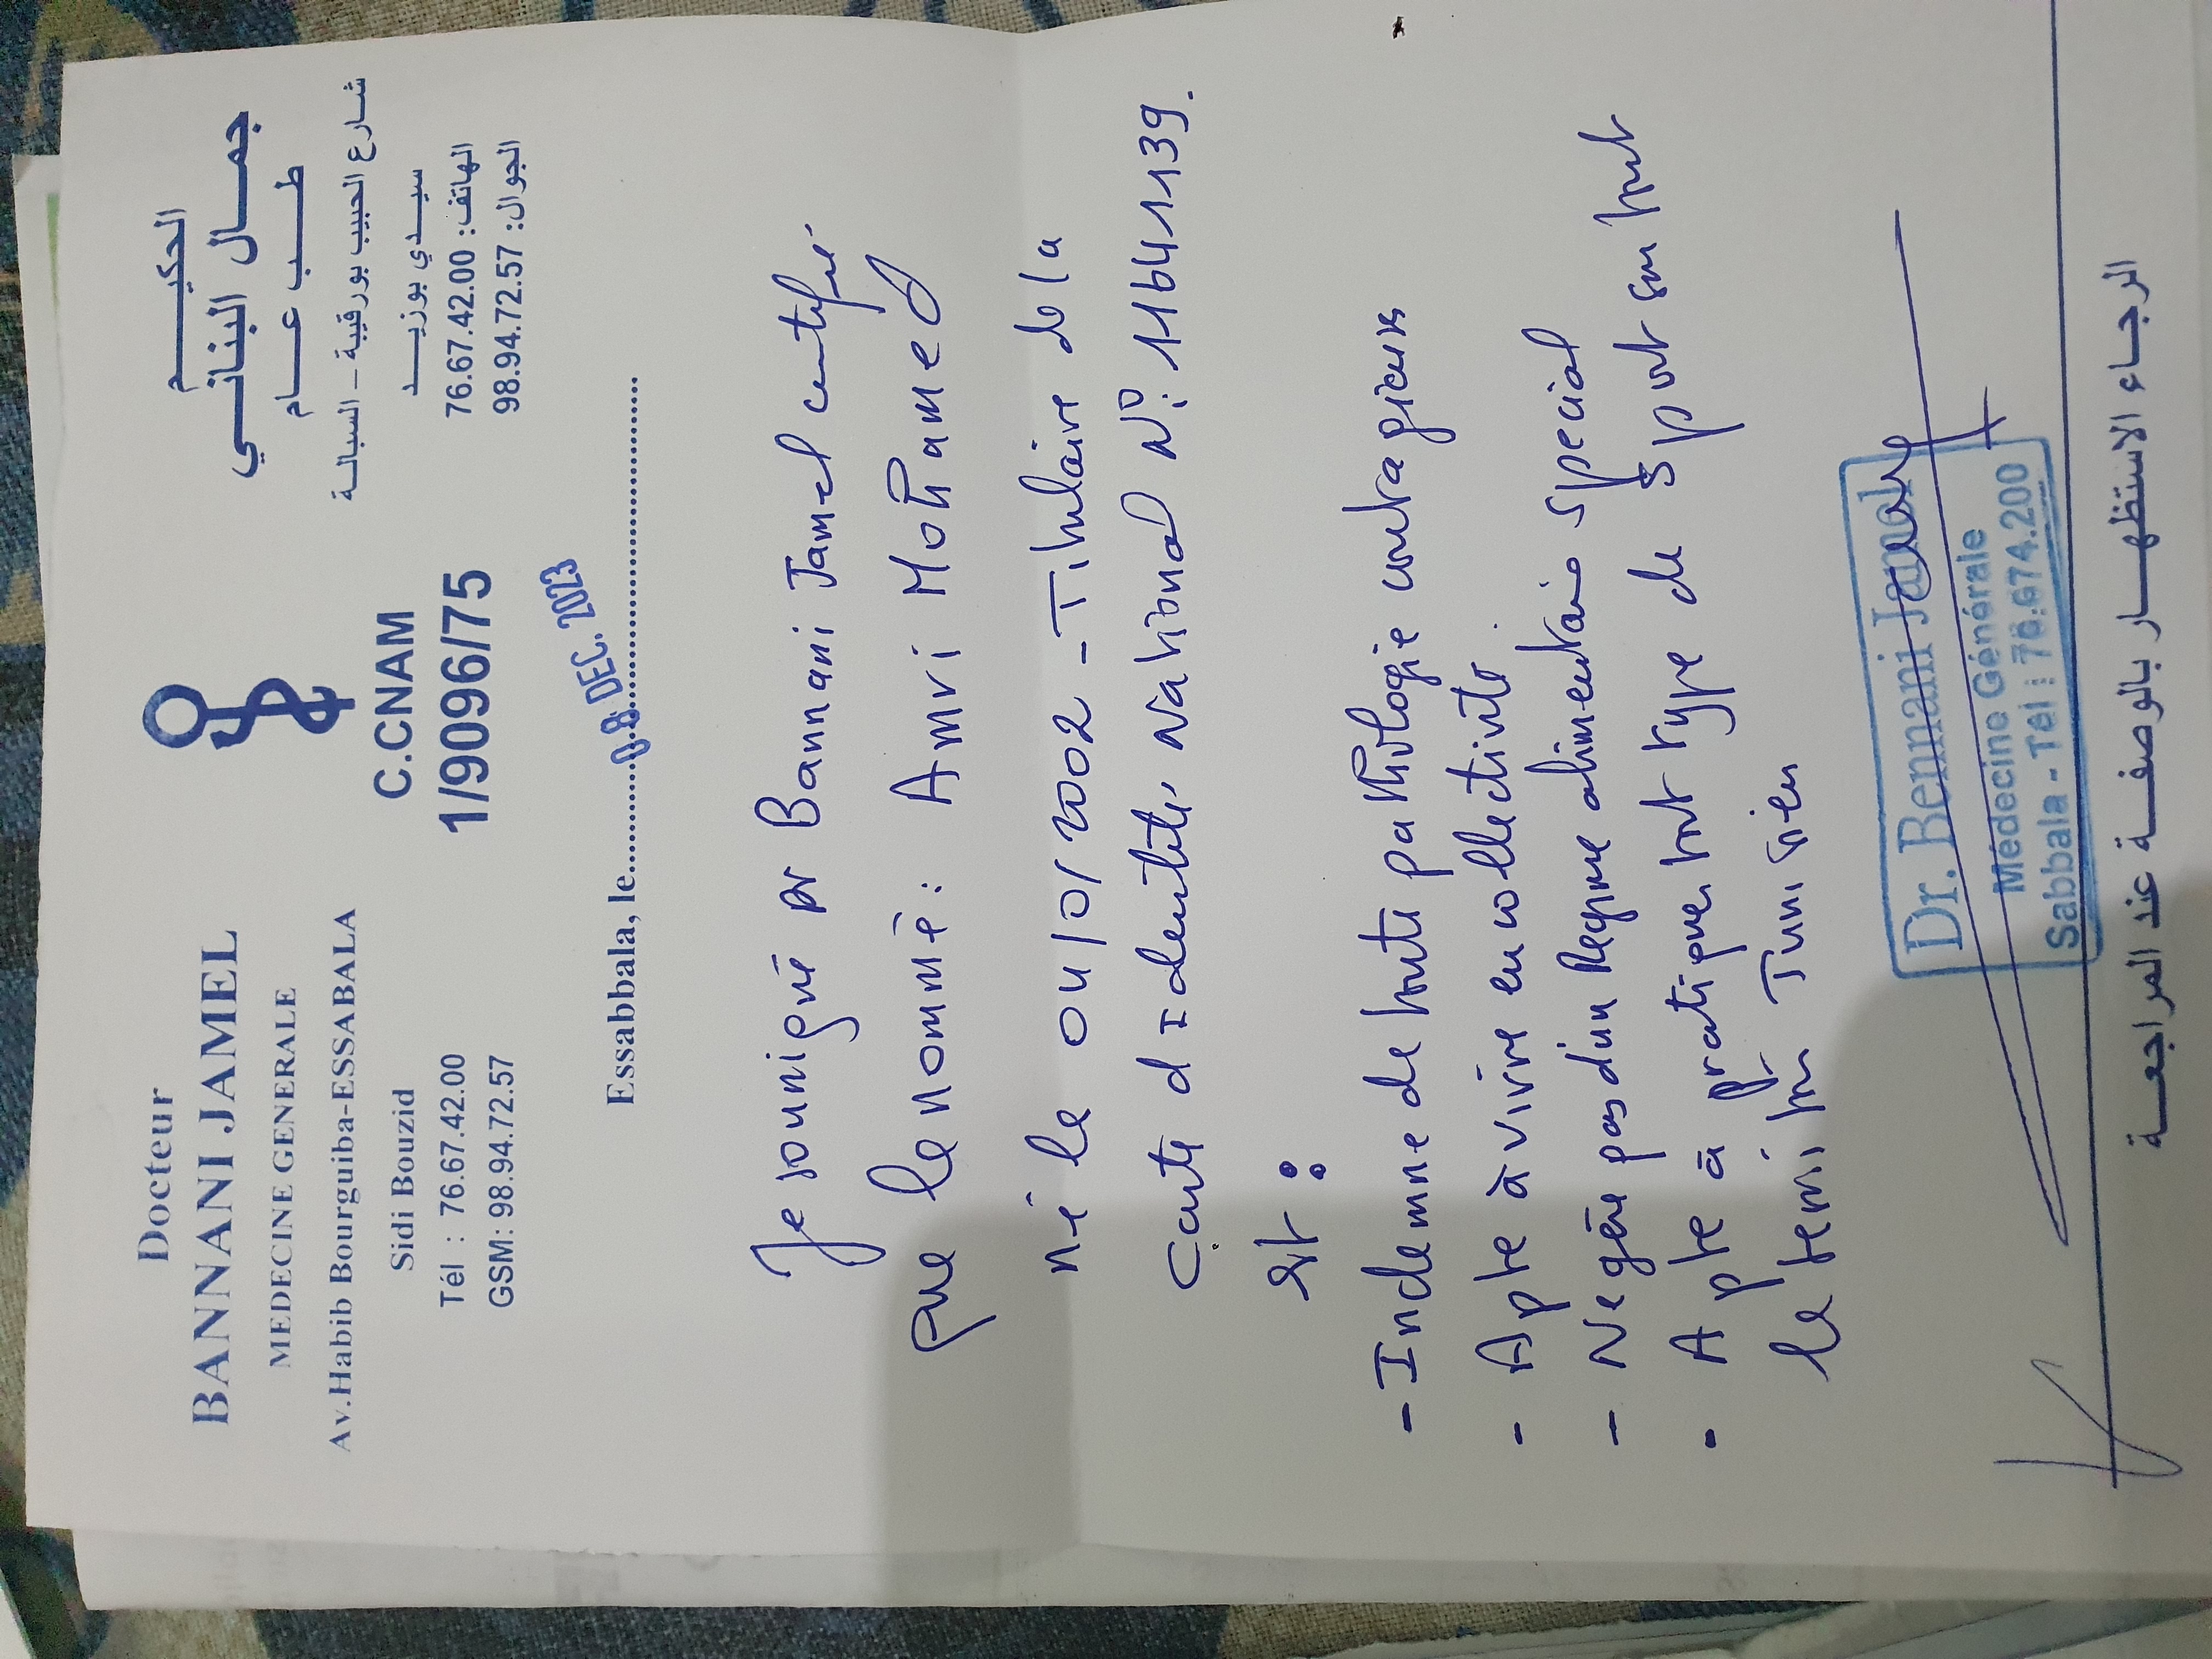 Docteur
BANNANI JAMEL
MEDECINE GENERALE
Av.Habib Bourguiba-ESSABALA
Sidi Bouzid
Tél : 76.67.42.00
GSM: 98.94.72.57
C.CNAM
1/9096/75
الحكيـــــم
جمـــال البنانـــي
طـــب عـــام
شـارع الحبيب بورقيبة - السبالـة
سيـــدي بوزيـــد
الهاتف: 76.67.42.00
الجوال: 98.94.72.57
Essabbala, le........................................
08 DEC. 2023
Je soussigné Dr Bannani Jamel certifie
que le nommé : Amri Mohamed
né le 04/01/2002 - Titulaire de la
Carte d'Identité National N°: 11641139.
est :
- Indemne de toute pathologie contagieuse
- Apte à vivre en collectivité.
- Ne gère pas d'un Régime alimentaire spécial
- Apte à pratiquer tout type de sport sur tout
le territoire Tunisien
Dr. Bennani Jamel
Médecine Générale
Sabbala - Tél : 76.674.200
الرجـاء الاستظهـــار بالوصفـــة عند المراجعـــة